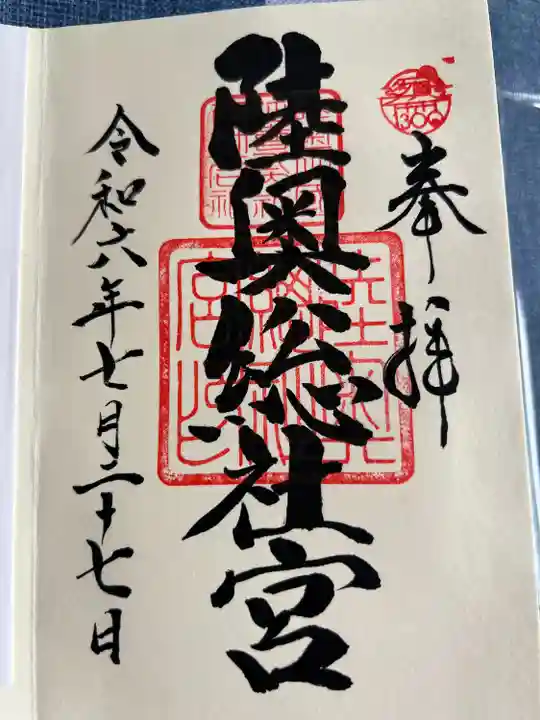 奉拝
陸奥総社宮
令和六年七月二十七日
1300